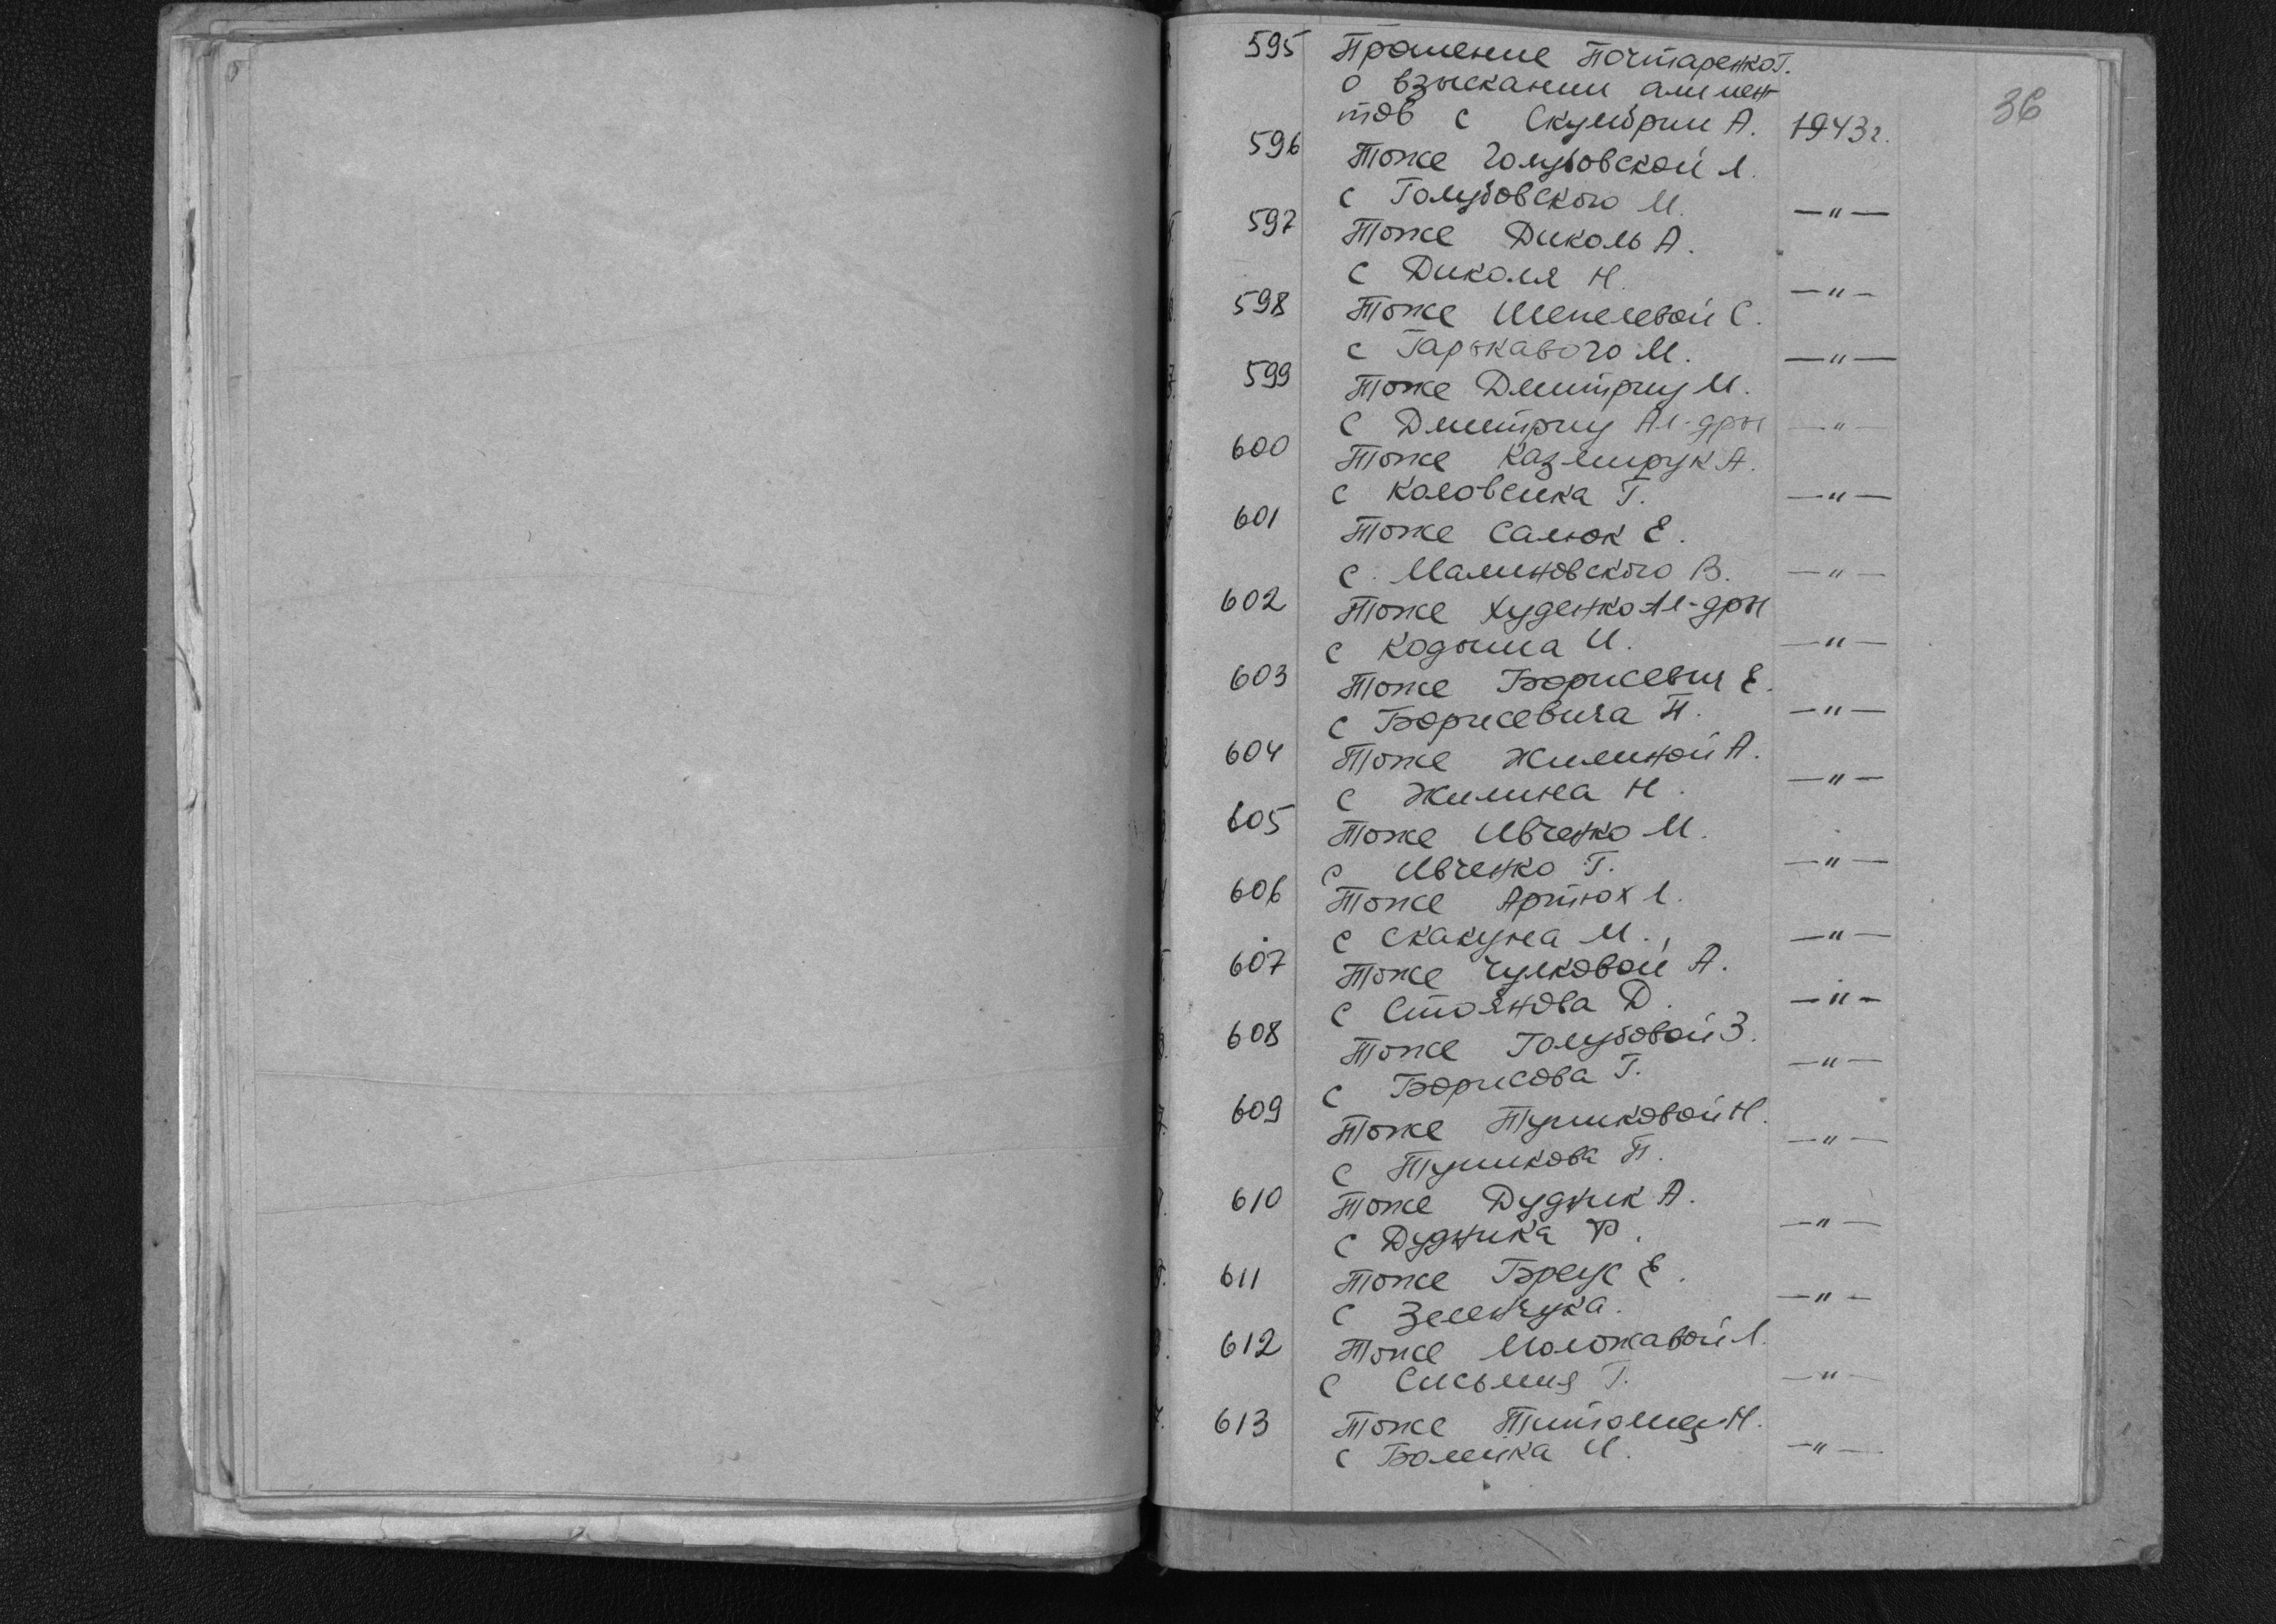 36
595 Прошение Почтаренко Г.
о взыскании алимен-
тов с Скумбрии А. 1943 г.
596 Тоже Голубовской Л.
с Голубовского М. —"—
597 Тоже Диколь А.
с Диколя Н. —"—
598 Тоже Шепелевой С.
с Гарькавого М. —"—
599 Тоже Дмитриу М.
с Дмитриу Ал-дры —"—
600 Тоже Казмирук А.
с Коловсика Г. —"—
601 Тоже Салюк Е.
с Малиновского В. —"—
602 Тоже Худенко Ал-дры
с Кодыма И. —"—
603 Тоже Борисевич Е.
с Борисевича П. —"—
604 Тоже Жилиной А.
с Жилина Н. —"—
605 Тоже Ивченко М.
с Ивченко Г. —"—
606 Тоже Артюх Л.
с Скакуна М. —"—
607 Тоже Чулковой А.
с Стоянова Д. —"—
608 Тоже Голубовой З.
с Борисова Г. —"—
609 Тоже Тушковой Н.
с Тушкова П. —"—
610 Тоже Дудник А.
с Дудника Ф. —"—
611 Тоже Бреус Е.
с Зеленчука. —"—
612 Тоже Моложавой Л.
с Г. —"—
613 Тоже Н.
с И. —"—